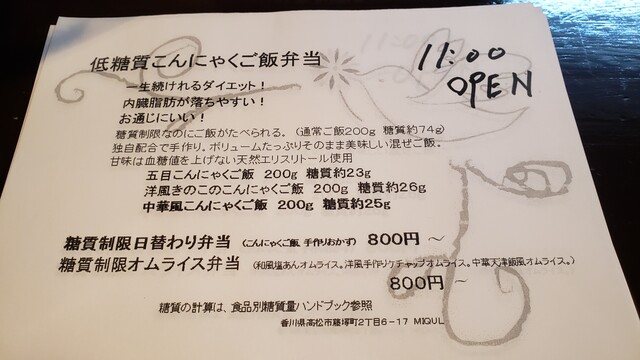 低糖質こんにゃくご飯弁当
11:00
OPEN
一生続けれるダイエット！
内臓脂肪が落ちやすい！
お通じにいい！
糖質制限なのにご飯がたべられる。（通常ご飯200g 糖質約74g）
独自配合で手作り。ボリュームたっぷりそのまま美味しい混ぜご飯。
甘味は血糖値を上げない天然エリスリトール使用
五目こんにゃくご飯 200g 糖質約23g
洋風きのこのこんにゃくご飯 200g 糖質約26g
中華風こんにゃくご飯 200g 糖質約25g
糖質制限日替わり弁当 （こんにゃくご飯、手作りおかず） 800円 ～
糖質制限オムライス弁当 （和風塩あんオムライス。洋風手作りケチャップオムライス。中華天津飯風オムライス。）
800円 ～
糖質の計算は、食品別糖質量ハンドブック参照
香川県高松市藤塚町2丁目6－17 MIQUL